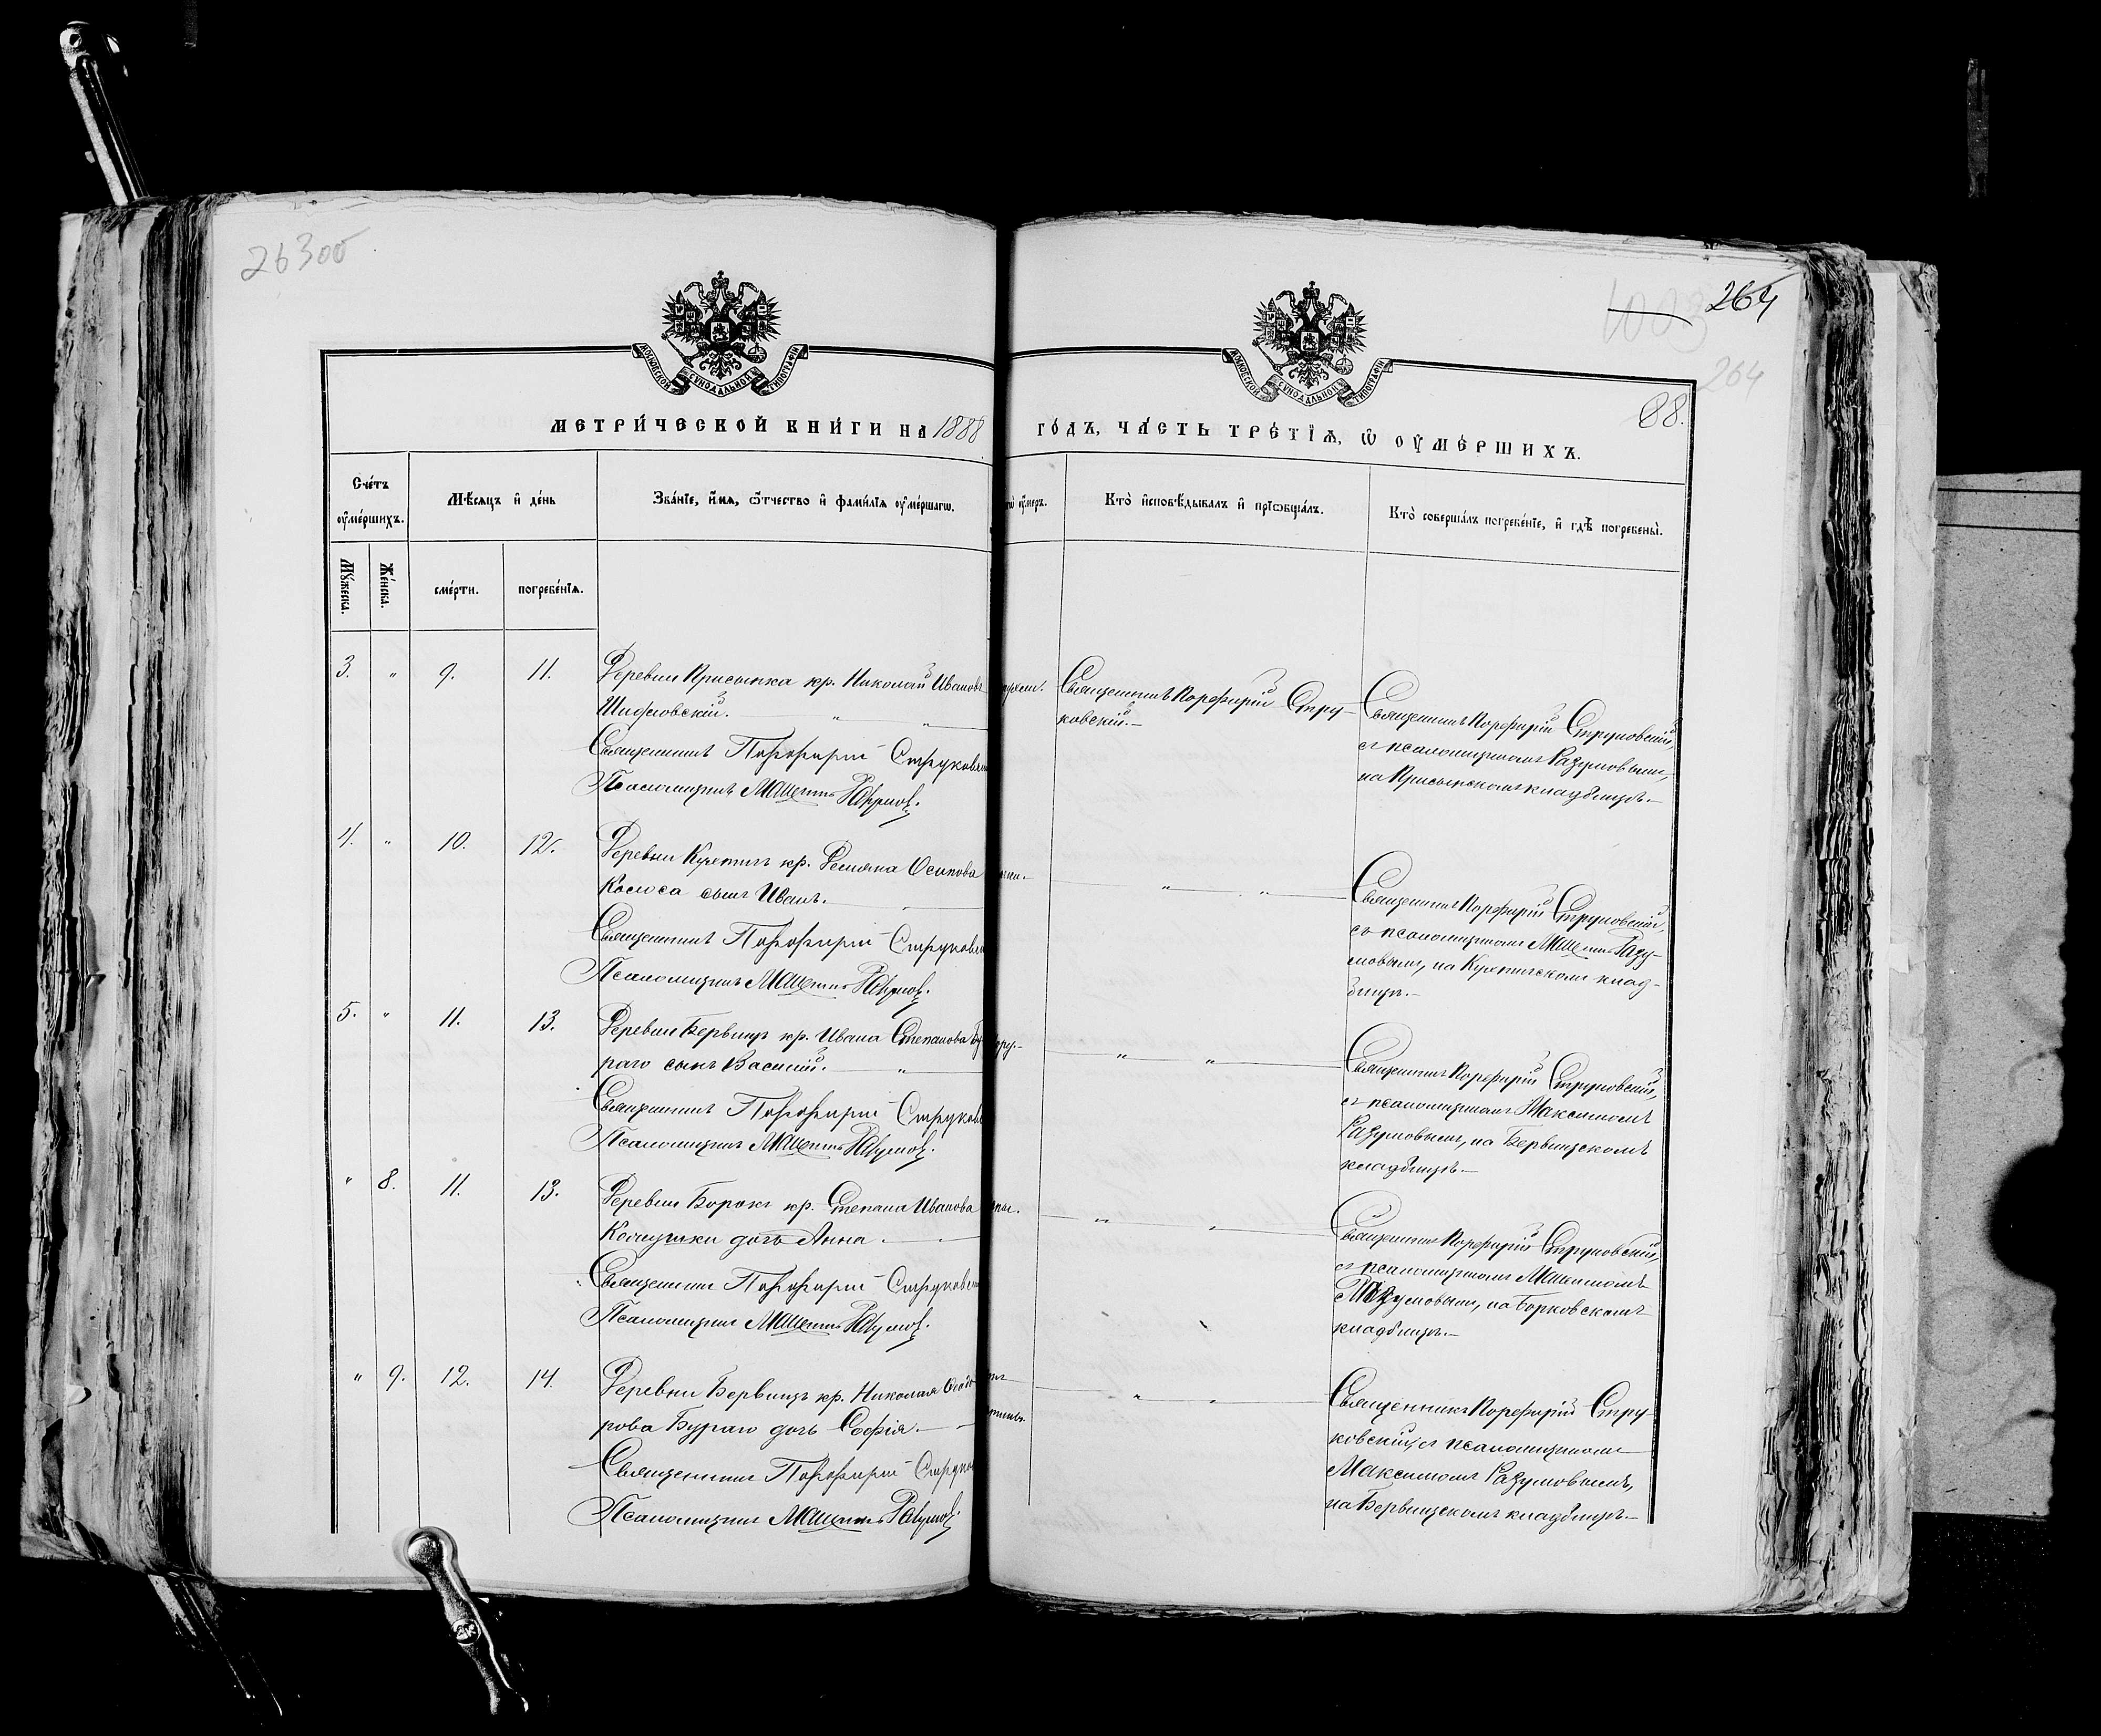 26300
264
264
88.
МОСКОВСКОЙ СѴНОДАЛЬНОЙ ТИПОГРАФІИ
МОСКОВСКОЙ СѴНОДАЛЬНОЙ ТИПОГРАФІИ
МЕТРИ́ЧЕСКОЙ КНИ́ГИ НА 1888 ГО́ДЪ, ЧА́СТЬ ТРЕ́ТІѦ, Ѡ҆ ОУ҆МЕ́РШИХЪ.
Сче́тъ оу҆ме́ршихъ.
Мѣ́сяцъ и҆ де́нь
Зва́нїе, и҆́мѧ, ѻ҆́тчество и҆ фамі́лїѧ оу҆ме́ршагѡ.
оу҆́меръ.
Кто̀ и҆сповѣ́дывалъ и҆ прїѡбща́лъ.
Кто̀ соверша́лъ погребе́нїе, и҆ гдѣ̀ погребены̀.
Мꙋ́жеска.
Же́нска.
сме́рти.
погребе́нїѧ.
3. " 9. 11.
Деревни Присынка кр. Николай Ивановъ
Шидловскій. " "
Священникъ Порфирій Струковскій
Псаломщикъ Максимъ Разумов.
Священникъ Порфирій Стру-
ковскій.
Священникъ Порфирій Струковскій,
съ псаломщикомъ Разумовымъ,
на Присынскомъ кладбищѣ.
4. " 10. 12.
Деревни Кухтичъ кр. Демяна Осипова
Колоса сынъ Иванъ.
Священникъ Порфирій Струковск
Псаломщикъ Максимъ Разумов.
" "
Священникъ Порфирій Струковскій,
съ псаломщикомъ Максимъ Разу-
мовымъ, на Кухтичскомъ клад-
бищѣ.
5. " 11. 13.
Деревни Бервищъ кр. Ивана Степанова Бу-
раго сынъ Василій. "
Священникъ Порфирій Струковс
Псаломщикъ Максимъ Разумов.
" "
Священникъ Порфирій Струковскій,
съ псаломщикомъ Максимомъ
Разумовымъ, на Бервищскомъ
кладбищѣ.
" 8. 11. 13.
Деревни Борокъ кр. Степана Иванова
дочь Анна.
Священникъ Порфирій Струковск
Псаломщикъ Максимъ Разумов.
" "
Священникъ Порфирій Струковскій,
съ псаломщикомъ Максимомъ
Разумовымъ, на Борковскомъ
кладбищѣ.
" 9. 12. 14.
Деревни Бервищъ кр. Николая Ѳедо-
рова Бураго дочь Софія.
Священникъ Порфирій Струко
Псаломщикъ Максимъ Разумов.
" "
Священникъ Порфирій Стру-
ковскій, съ псаломщикомъ
Максимомъ Разумовымъ,
на Бервищскомъ кладбищѣ.